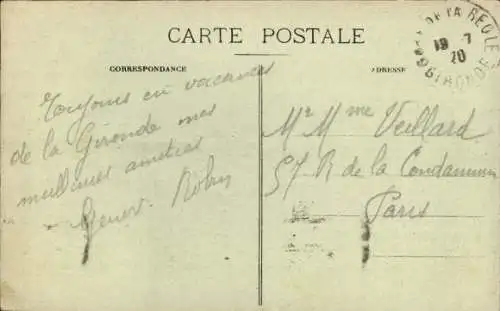 CARTE POSTALE
CORRESPONDANCE
ADRESSE
LA REOLE
19 - 7
20
GIRONDE
Toujours en vacances
de la Gironde mes
meilleures amities
Robin
Mr Mme Veillard
57 R de la Condamine
Paris